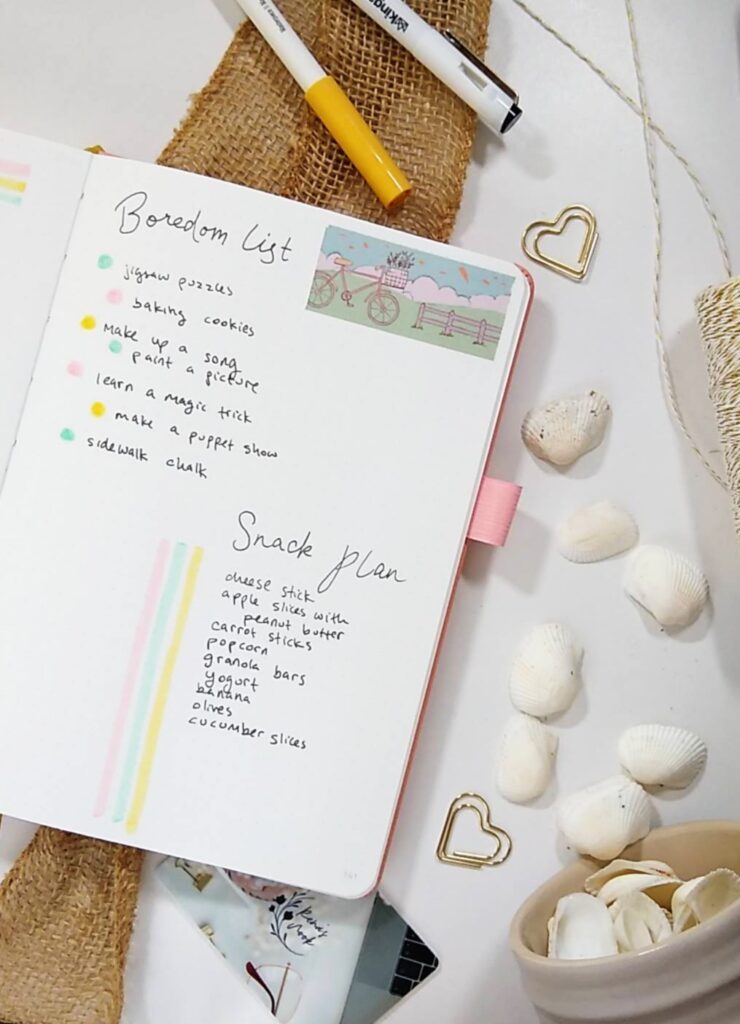 Boredom List
jigsaw puzzles
baking cookies
make up a song
paint a picture
learn a magic trick
make a puppet show
sidewalk chalk
Snack plan
cheese stick
apple slices with
peanut butter
carrot sticks
popcorn
granola bars
yogurt
banana
olives
cucumber slices